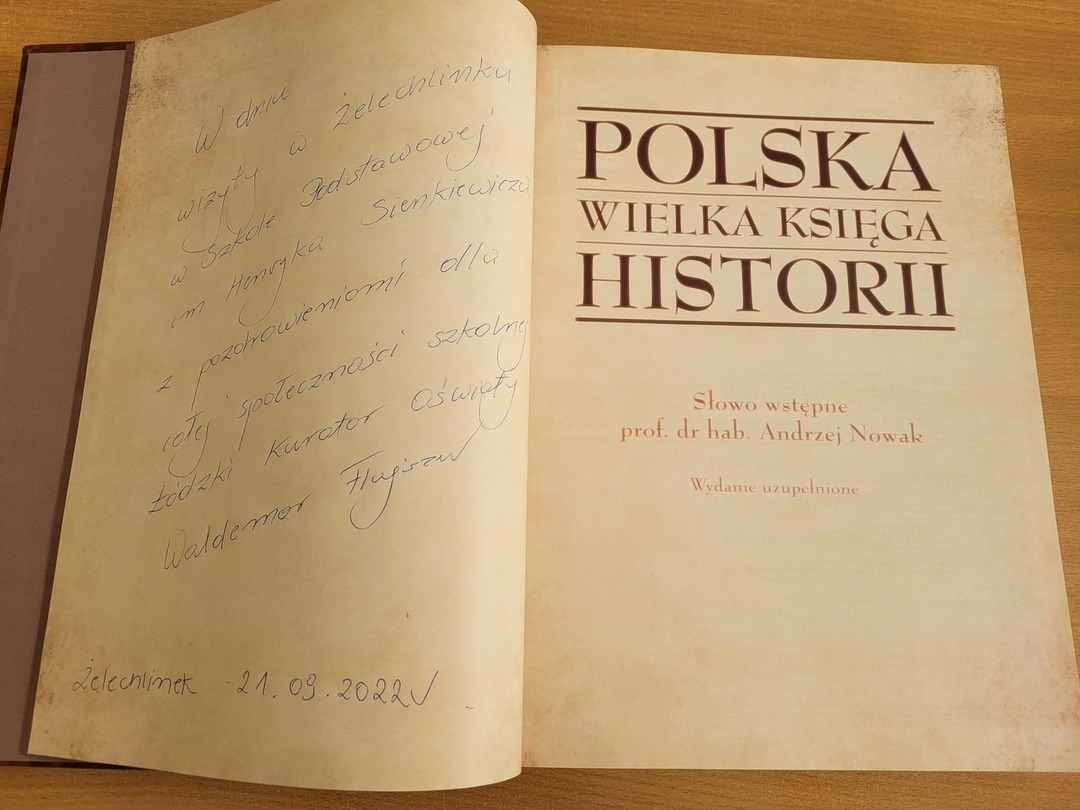 W dniu
wizyty w Żelechlinku
w Szkole Podstawowej
im Henryka Sienkiewicza
z pozdrowieniami dla
całej społeczności szkolnej
Łódzki Kurator Oświaty
Waldemar Flajszer
Żelechlinek 21.09.2022
POLSKA
WIELKA KSIĘGA
HISTORII
Słowo wstępne
prof. dr hab. Andrzej Nowak
Wydanie uzupełnione